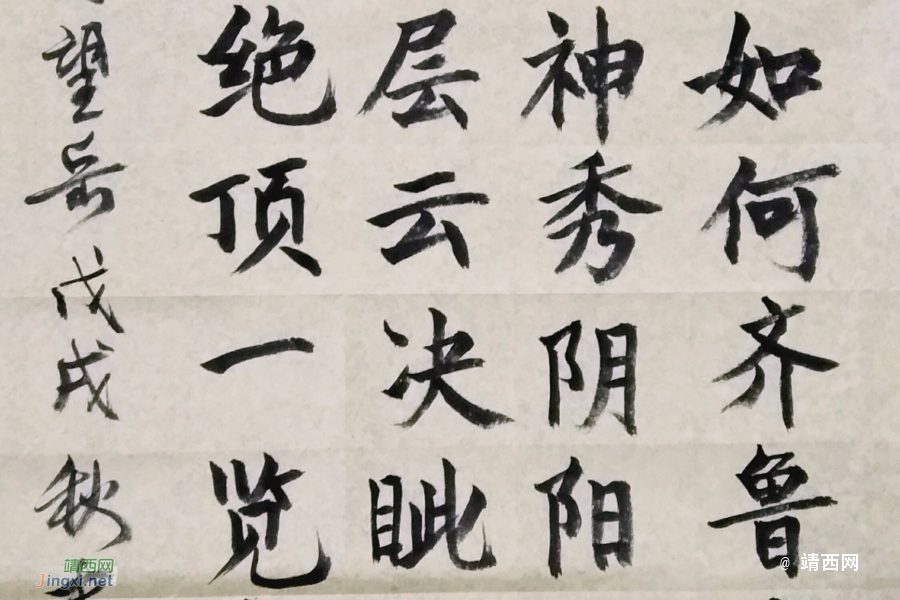 如何齐鲁
神秀阴阳
层云决眦
绝顶一览
望岳戊戌秋
靖西网
Jingxi.net
@ 靖西网